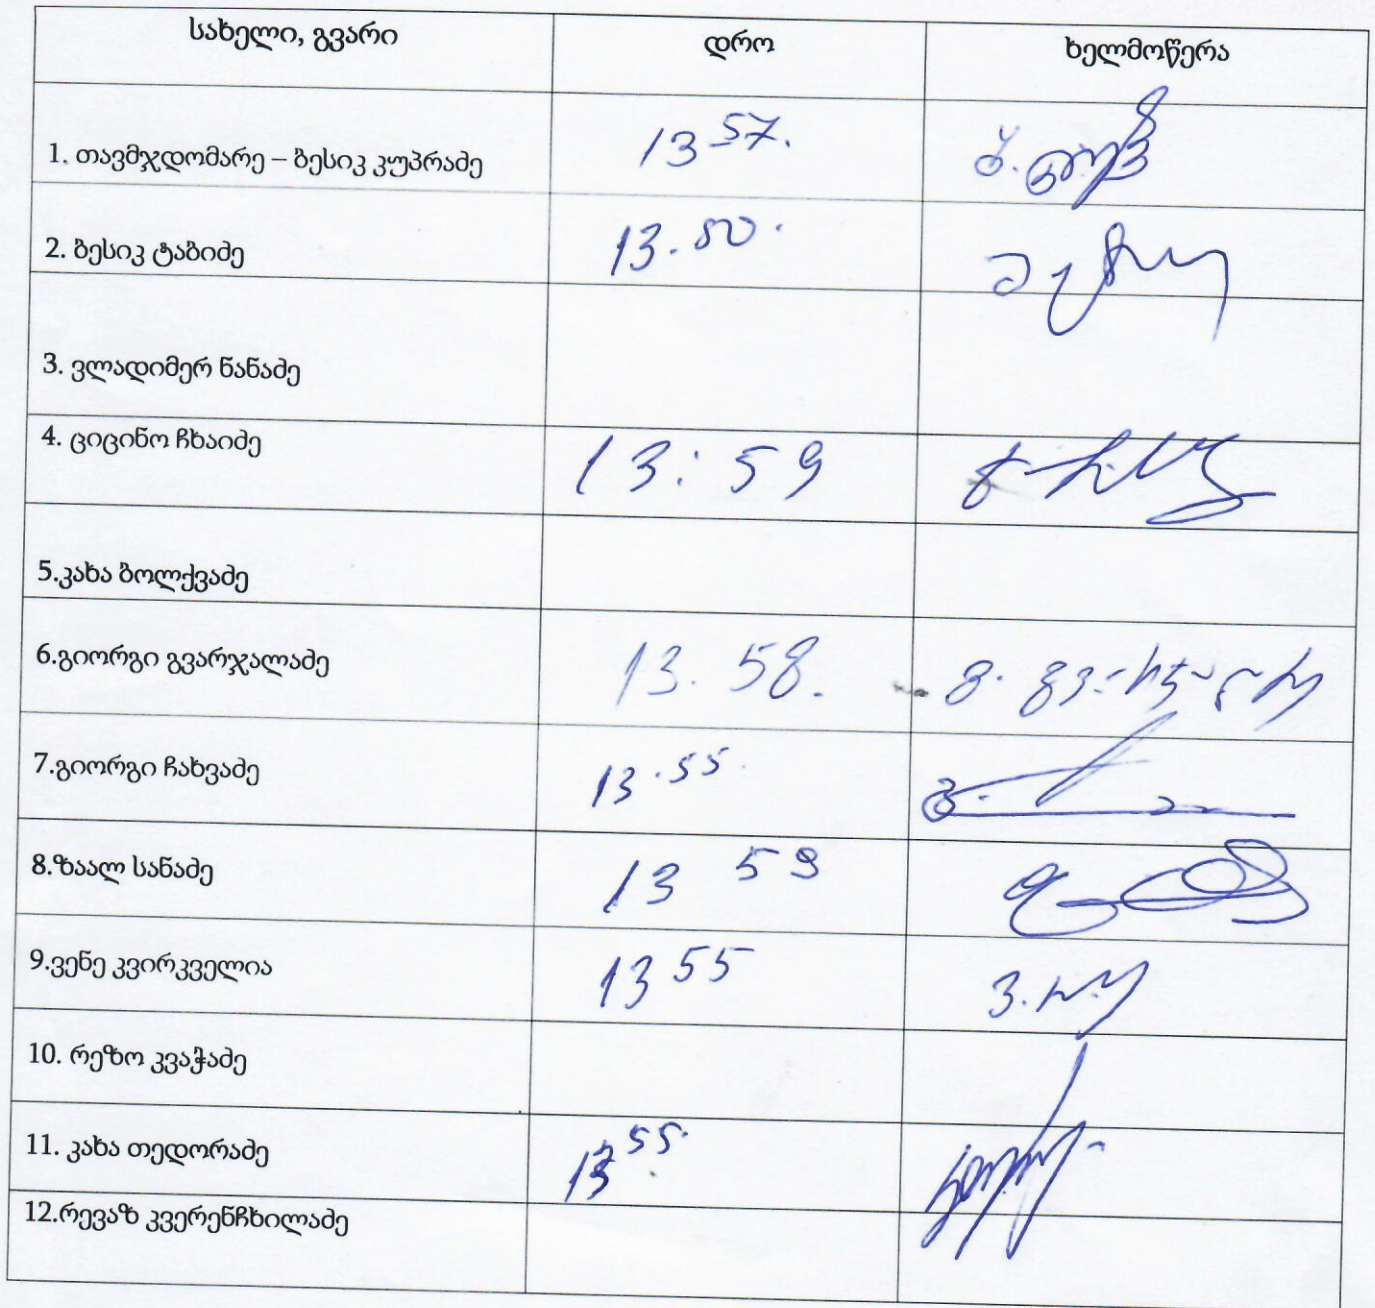 სახელი, გვარი დრო ხელმოწერა
1. თავმჯდომარე – ბესიკ კუპრაძე 13 57.
2. ბესიკ ტაბიძე 13.50.
3. ვლადიმერ ნანაძე
4. ციცინო ჩხაიძე 13:59
5.კახა ბოლქვაძე
6.გიორგი გვარჯალაძე 13.58. გ. გვარჯალაძე
7.გიორგი ჩახვაძე 13.55
8.ზაალ სანაძე 13 59
9.ვენე კვირკველია 13 55
10. რეზო კვაჭაძე
11. კახა თედორაძე 13 55.
12.რევაზ კვერენჩხილაძე